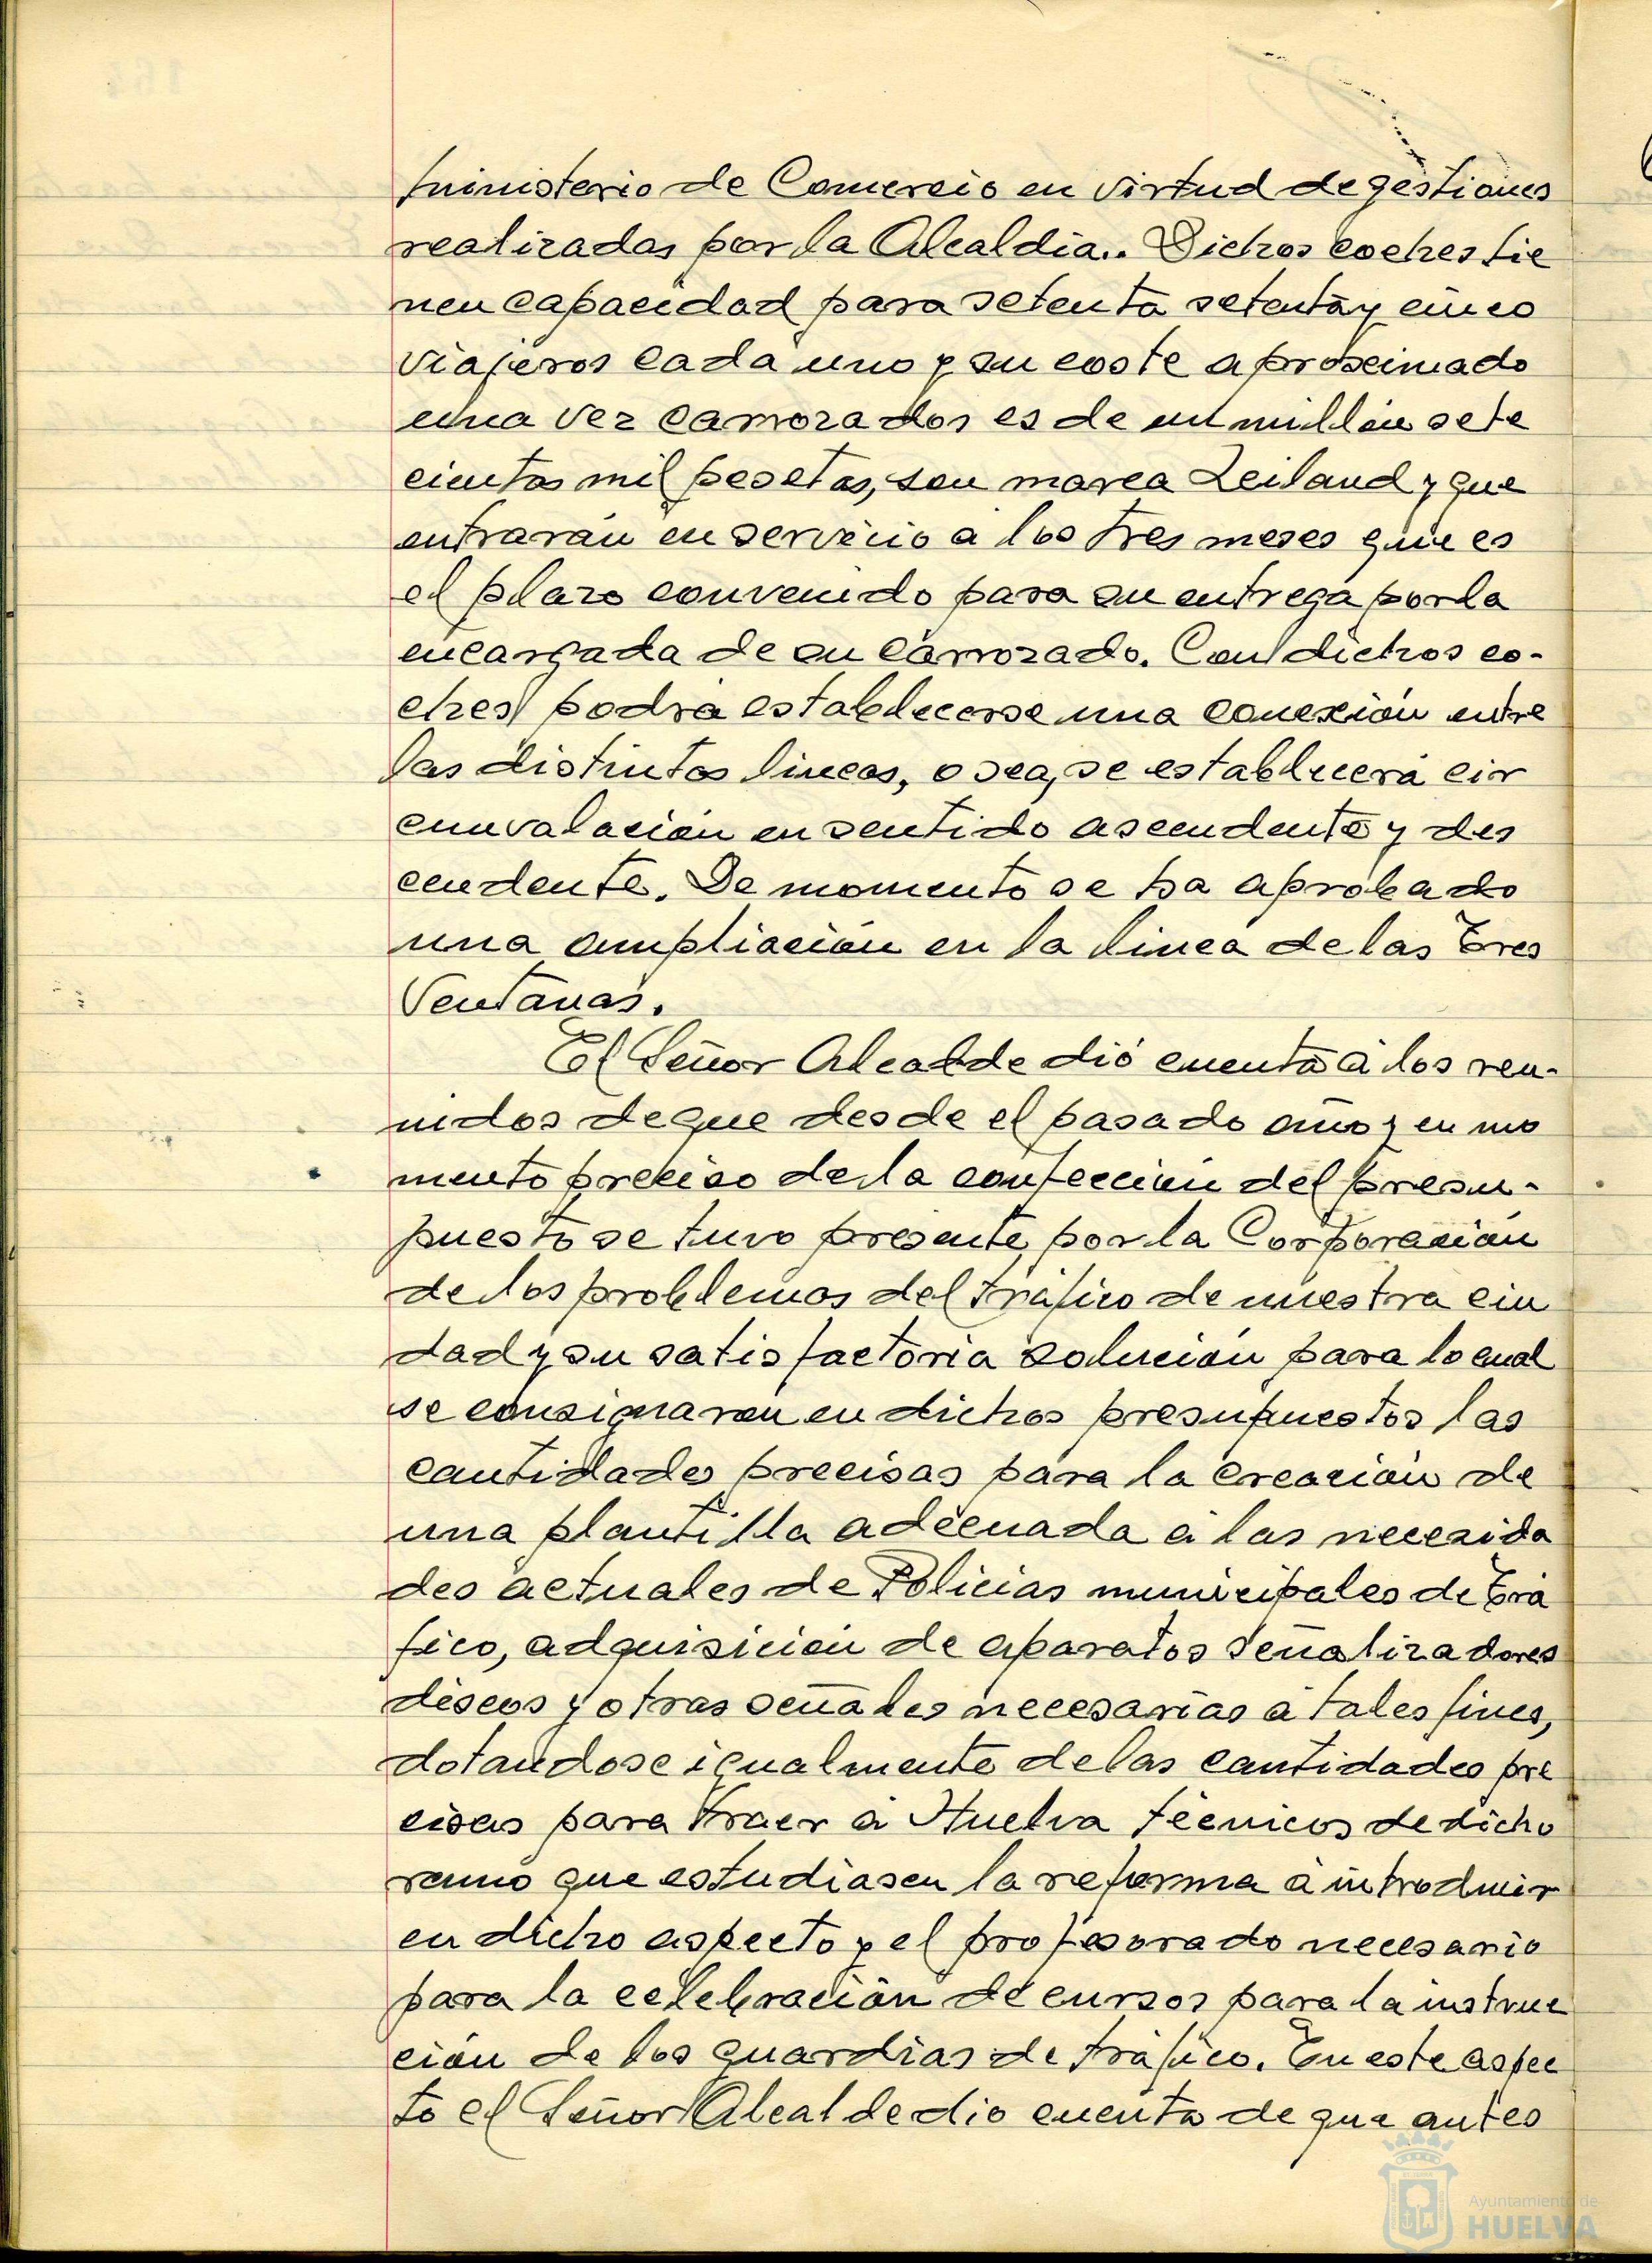 ministerio de Comercio en virtud de gestiones
realizadas por la Alcaldía.. Dichos coches tie
nen capacidad para setenta setenta y cinco
viajeros cada uno y su coste aproximado
una vez carrozados es de un millón sete
cientas mil pesetas, son marca Leiland y que
entrarán en servicio a los tres meses que es
el plazo convenido para su entrega por la
encargada de su carrozado. Con dichos co-
ches podrá establecerse una conexión entre
las distintas lineas, o sea, se establecerá cir
cunvalación en sentido ascendente y des
cendente. De momento se ha aprobado
una ampliación en la linea de las Tres
Ventanas.
El Señor Alcalde dió cuenta a los reu-
nidos de que desde el pasado año y en mo
mento preciso de la confección del presu-
puesto se tuvo presente por la Corporación
de los problemas del tráfico de nuestra ciu
dad y su satisfactoria solución para lo cual
se consignaron en dichos presupuestos las
cantidades precisas para la creación de
una plantilla adecuada a las necesida
des actuales de Policias municipales de Trá
fico, adquisición de aparatos señalizadores
discos y otras señales necesarias a tales fines,
dotandose igualmente de las cantidades pre
cisas para traer a Huelva técnicos de dicho
ramo que estudiasen la reforma a introducir
en dicho aspecto y el profesorado necesario
para la celebración de cursos para la instruc
ción de los guardias de tráfico. En este aspec
to el Señor Alcalde dio cuenta de que antes
Ayuntamiento de
HUELVA